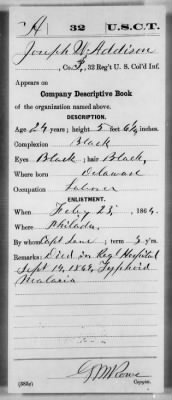 A | 32 | U.S.C.T.
Joseph W. Addison
, Co. F, 32 Reg't U. S. Col'd Inf.
Appears on
Company Descriptive Book
of the organization named above.
DESCRIPTION.
Age 24 years; height 5 feet 6¼ inches.
Complexion Black
Eyes Black; hair Black
Where born Delaware
Occupation Laborer
ENLISTMENT.
When Feby 23, 1864.
Where Philada.
By whom Capt Lane; term 3 y'rs.
Remarks: Died in Reg Hospital
Sept 14, 1864, Typhoid
Malaria
G M Rowe
(383g) Copyist.